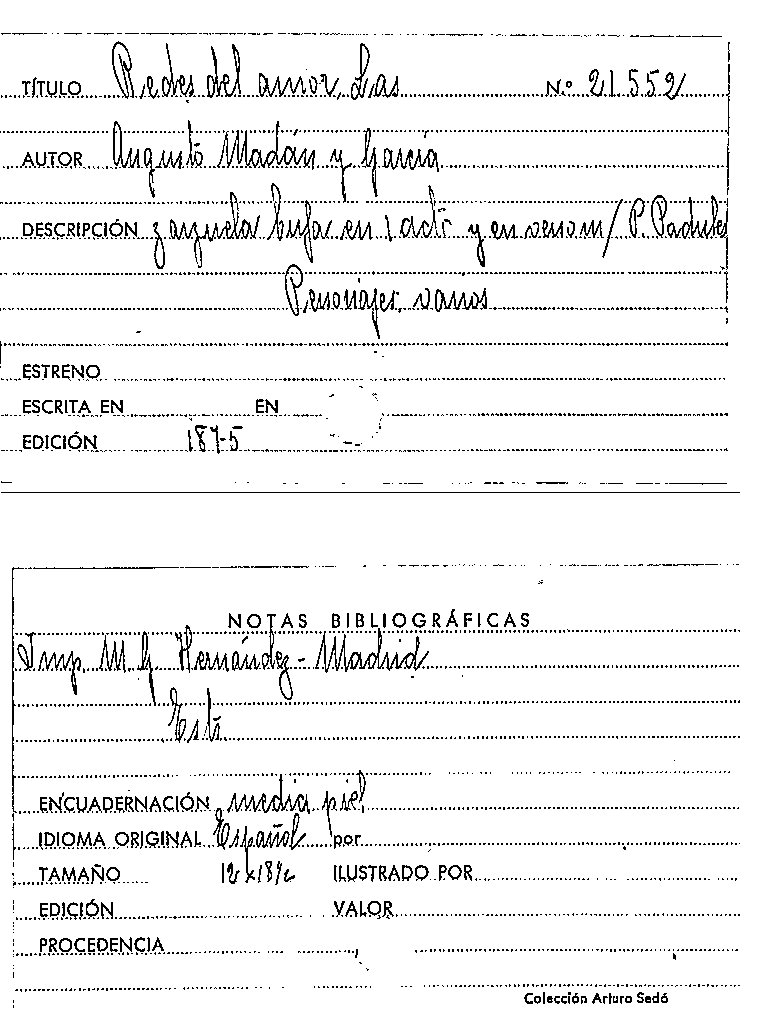 TÍTULO Redes del amor, Las N.º 21552
AUTOR Augusto Madán y García
DESCRIPCIÓN zarzuela bufa en 1 acto y en verso m/ P.
Personajes varios
ESTRENO
ESCRITA EN EN
EDICIÓN 1875
NOTAS BIBLIOGRÁFICAS
Imp. M. G. Hernández - Madrid
ENCUADERNACIÓN media piel
IDIOMA ORIGINAL Español por
TAMAÑO 12 x 18 1/2 ILUSTRADO POR
EDICIÓN VALOR
PROCEDENCIA
Colección Arturo Sedó